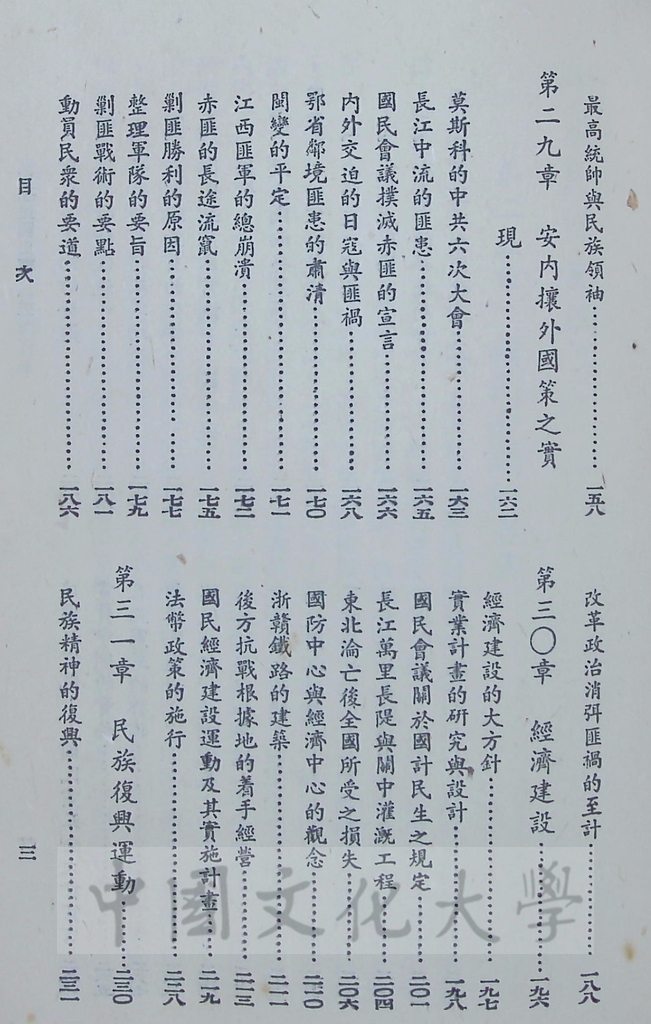 最高統帥與民族領袖……一五八
第二九章　安內攘外國策之實
現……一六二
莫斯科的中共六次大會……一六三
長江中流的匪患……一六五
國民會議撲滅赤匪的宣言……一六六
內外交迫的日寇與匪禍……一六八
鄂省鄰境匪患的肅清……一七〇
閩變的平定……一七一
江西匪軍的總崩潰……一七二
赤匪的長途流竄……一七五
剿匪勝利的原因……一七七
整理軍隊的要旨……一七九
剿匪戰術的要點……一八一
動員民衆的要道……一八六
改革政治消弭匪禍的至計……一八八
第三〇章　經濟建設……一九六
經濟建設的大方針……一九七
實業計畫的研究與設計……一九八
國民會議關於國計民生之規定……二〇一
長江萬里長隄與關中灌漑工程……二〇四
東北淪亡後全國所受之損失……二〇六
國防中心與經濟中心的觀念……二一〇
浙贛鐵路的建築……二一一
後方抗戰根據地的着手經營……二一三
國民經濟建設運動及其實施計畫……二一九
法幣政策的施行……二二八
第三一章　民族復興運動……二三〇
民族精神的復興……二三一
目次
三
中國文化大學